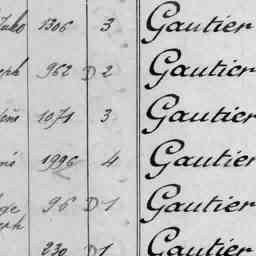 1306 3 Gautier
962 D 2 Gautier
1071 3 Gautier
1996 4 Gautier
96 D 1 Gautier
230 D 1 Gautier